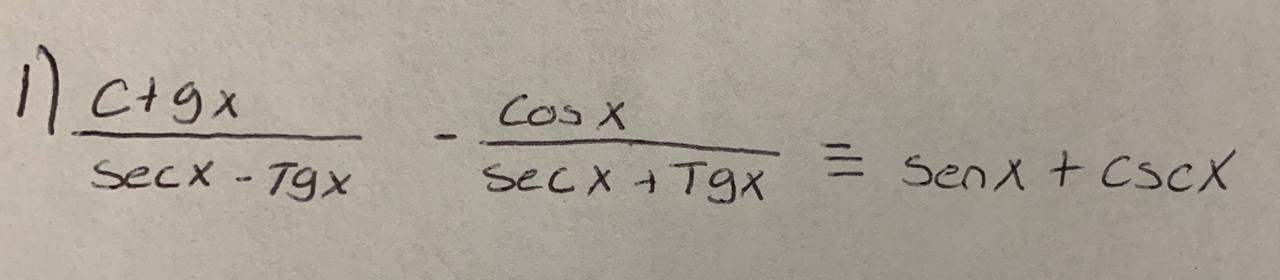 1) ctgx / secx - Tgx - cosx / secx + Tgx ≡ senx + cscx